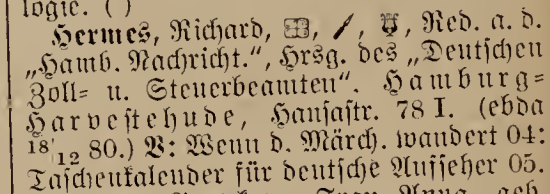 logie. ( )
Hermes, Richard, Red. a. d.
„Hamb. Nachricht.", Hrsg. des „Deutschen
Zoll= u. Steuerbeamten". Hamburg=
Harvestehude, Hansastr. 78 I. (ebda
18/12 80.) V: Wenn d. Märch. wandert 04:
Taschenkalender für deutsche Aufseher 05.
Frau Anna geb.